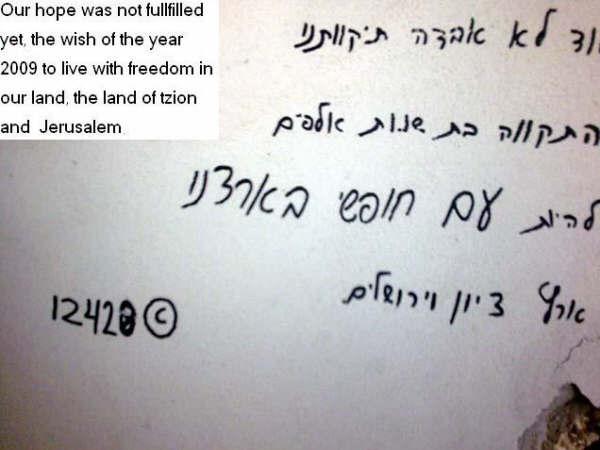 Our hope was not fullfilled
yet, the wish of the year
2009 to live with freedom in
our land, the land of tzion
and Jerusalem
וד לא אבדה תיקוותנו
התקווה בת שנות אלפים
להיות עם חופשי בארצנו
ארץ ציון וירושלים
©